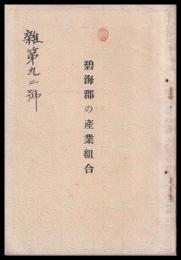 碧海郡の産業組合
雜第九二號